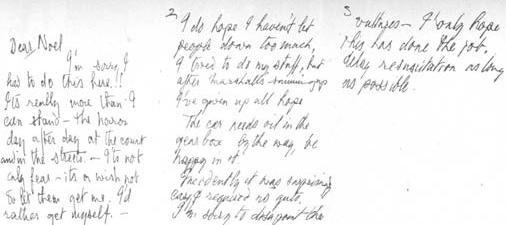 Dear Noel
I'm sorry I
has to do this here!!
It's really more than I
can stand - the horror
day after day at the court
and in the streets. - It's not
only fear - its a wish not
to let them get me. I'd
rather get myself. -
2
I do hope I haven't let
people down too much,
I tried to do my stuff, but
after Marshall's summing up
I've given up all hope
The car needs oil in the
gear box by the way, be
happy in it
Incidently it was surprising
easy & required no guts.
I'm sorry to disapoint the
3
vultures - I only hope
this has done the job.
delay resuscitation as long
as possible.